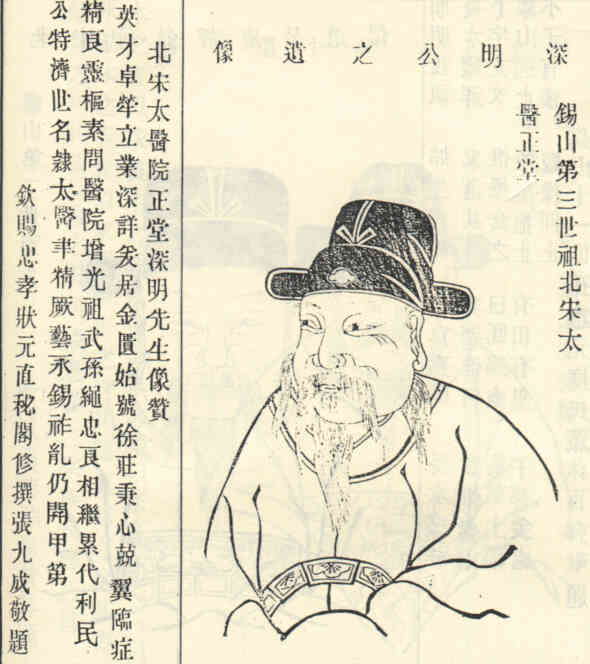 深明公之遺像
錫山第三世祖北宋太
醫正堂
北宋太醫院正堂深明先生像贊
英才卓犖立業深詳爰居金匱始號徐莊秉心兢翼臨症
精良靈樞素問醫院增光祖武孫繩忠良相繼累代利民
公特濟世名隸太醫聿精厥藝永錫祚胤仍開甲第
欽賜忠孝狀元直秘閣修撰張九成敬題